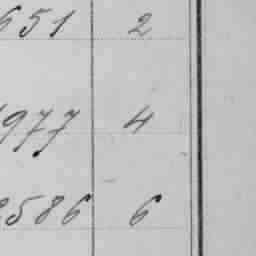 651 2
1977 4
2586 6